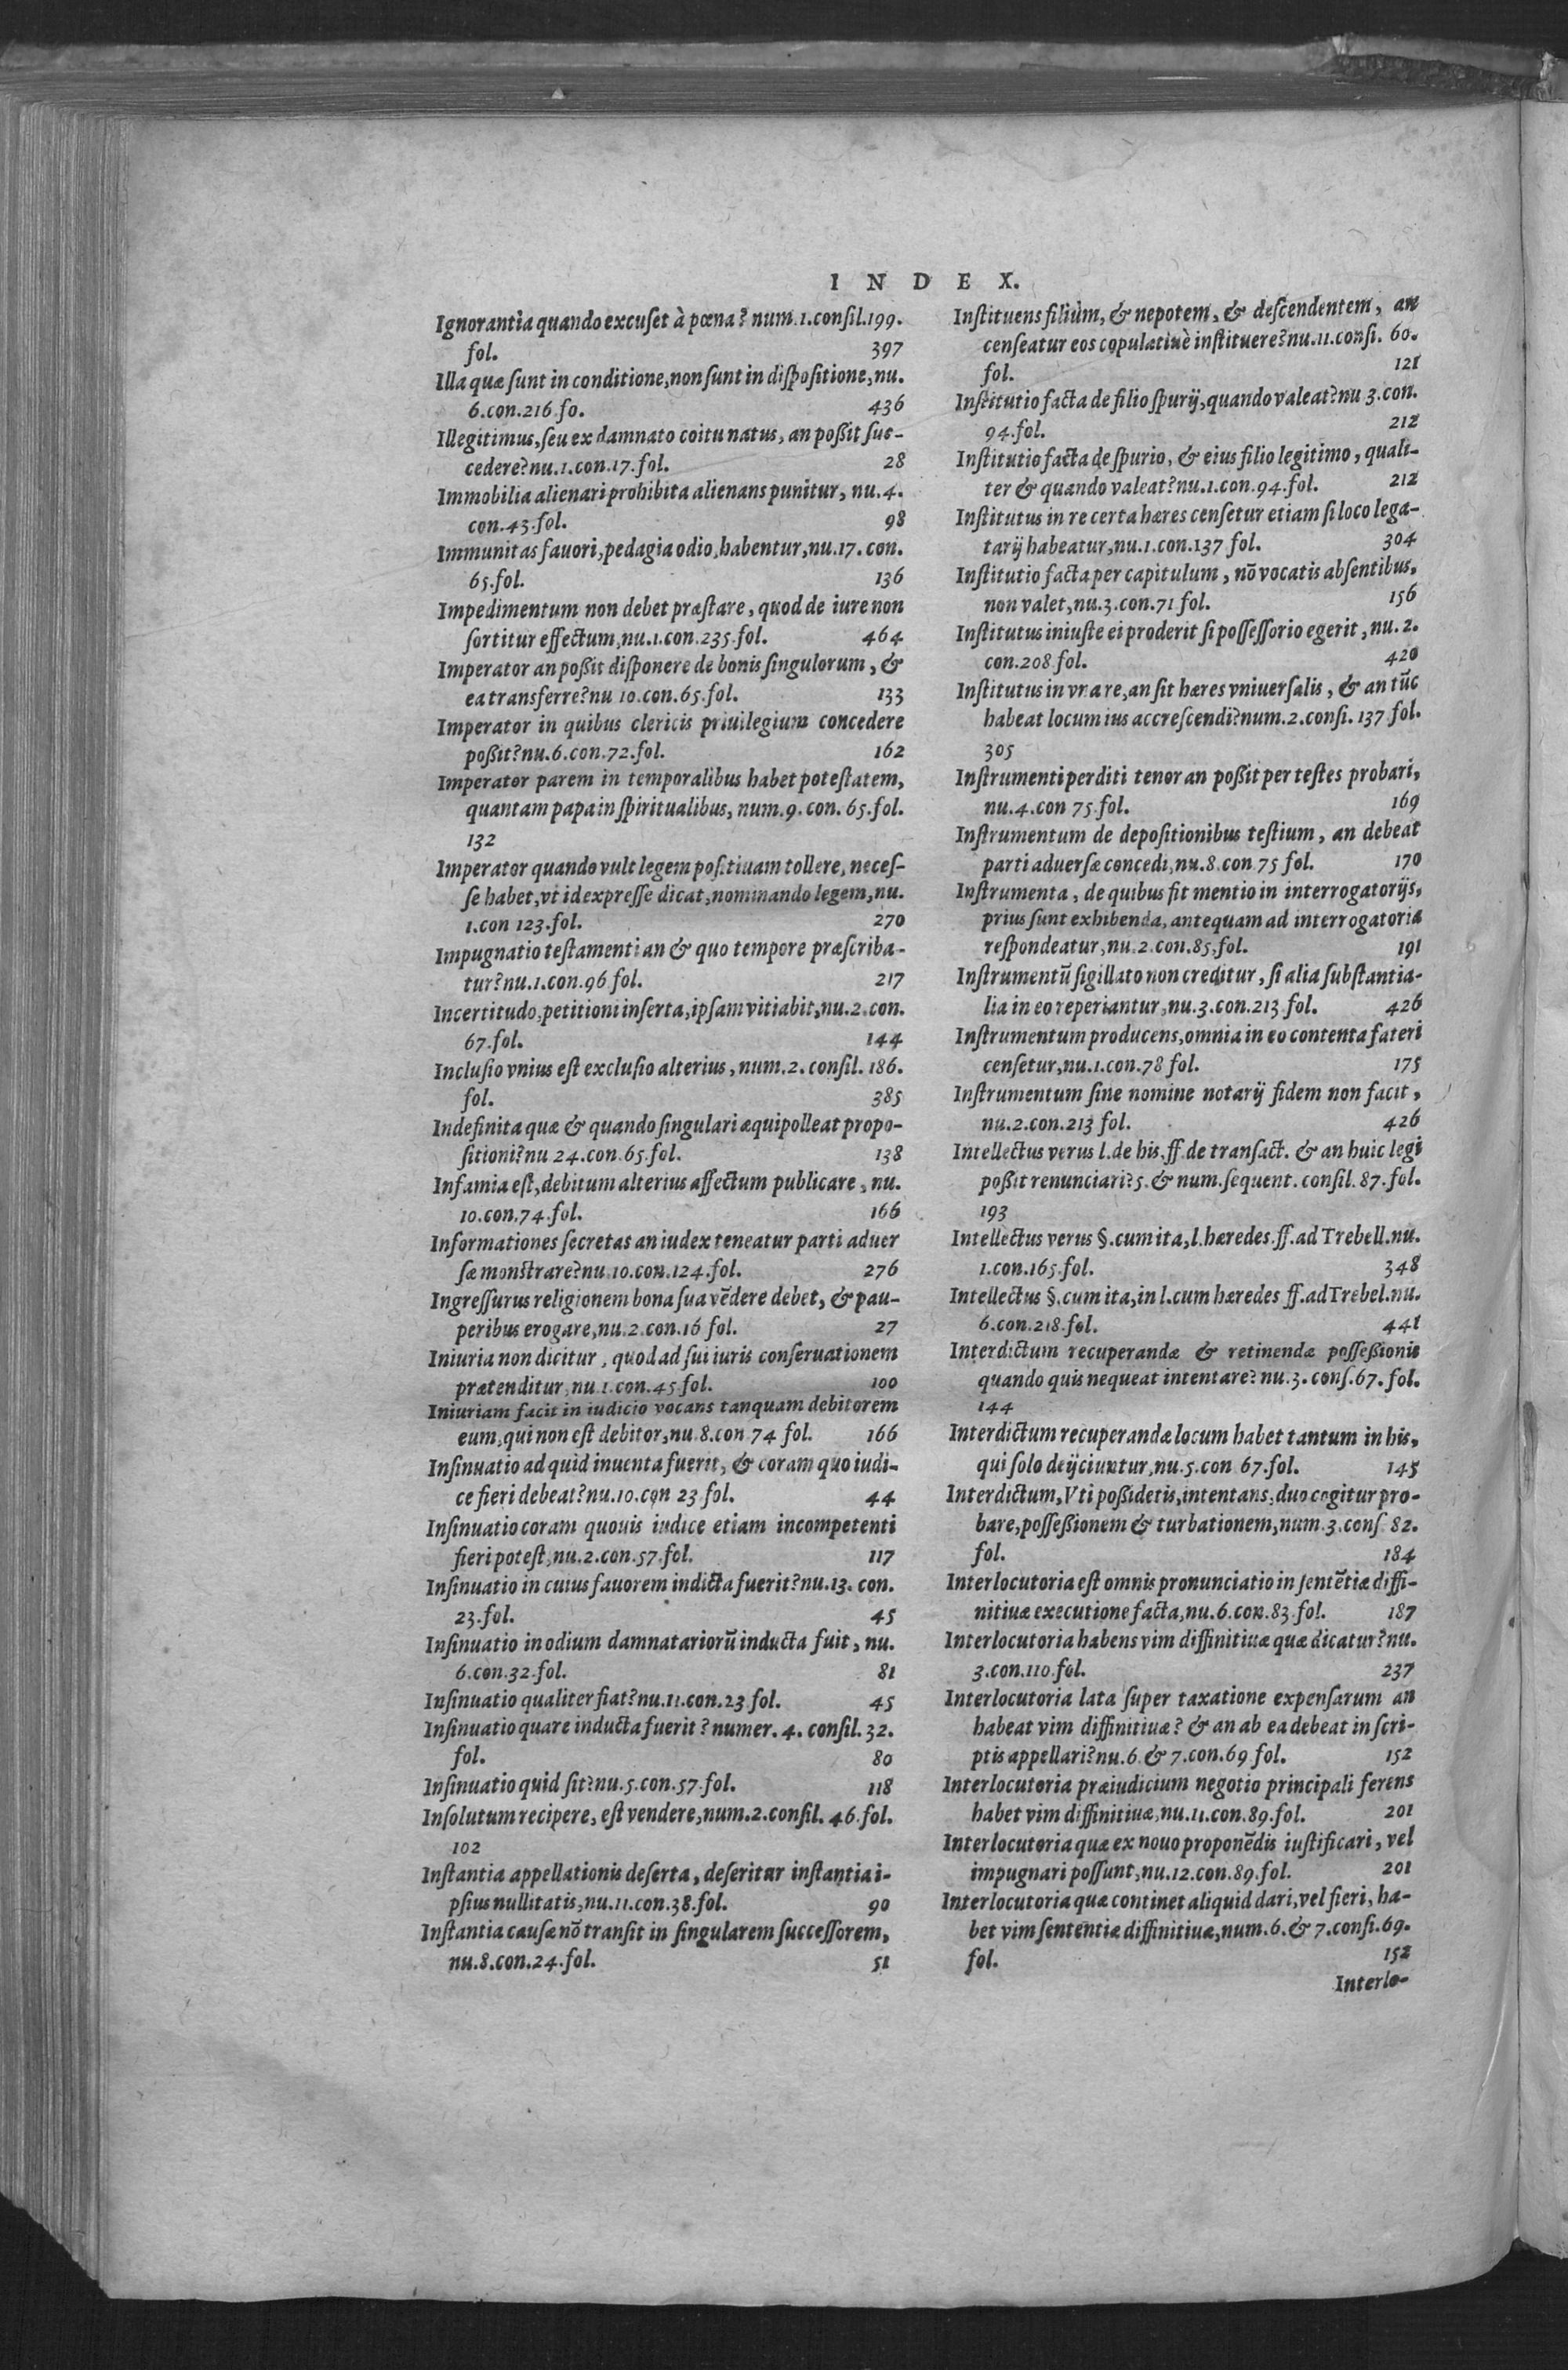 INDEX.
Ignorantia quando excuſet à pœna? num.1.conſil.199.
fol. 397
Illa quæ ſunt in conditione,non ſunt in diſpoſitione,nu.
6.con.216.fo. 436
Illegitimus,ſeu ex damnato coitu natus, an poßit ſuc-
cedere?nu.1.con.17.fol. 28
Immobilia alienari prohibita alienans punitur, nu.4.
con.43.fol. 98
Immunitas fauori,pedagia odio,habentur,nu.17.con.
65.fol. 136
Impedimentum non debet præſtare, quod de iure non
ſortitur effectum,nu.1.con.235.fol. 464
Imperator an poßit diſponere de bonis ſingulorum, &
ea transferre?nu 10.con.65.fol. 133
Imperator in quibus clericis priuilegium concedere
poßit?nu.6.con.72.fol. 162
Imperator parem in temporalibus habet poteſtatem,
quantam papa in ſpiritualibus, num.9.con. 65.fol.
132
Imperator quando vult legem poſitiuam tollere, neceſ-
ſe habet,vt id expreſſe dicat,nominando legem,nu.
1.con 123.fol. 270
Impugnatio teſtamenti an & quo tempore præſcriba-
tur?nu.1.con.96 fol. 217
Incertitudo,petitioni inſerta,ipſam vitiabit,nu.2.con.
67.fol. 144
Incluſio vnius eſt excluſio alterius, num.2. conſil. 186.
fol. 385
Indefinita quæ & quando ſingulari æquipolleat propo-
ſitioni?nu 24.con.65.fol. 138
Infamia eſt,debitum alterius affectum publicare, nu.
10.con.74.fol. 166
Informationes ſecretas an iudex teneatur parti aduer
ſæ monſtrare?nu.10.con.124.fol. 276
Ingreſſurus religionem bona ſua vẽdere debet, & pau-
peribus erogare,nu.2.con.16 fol. 27
Iniuria non dicitur, quod ad ſui iuris conſeruationem
prætenditur,nu.1.con.45.fol. 100
Iniuriam facit in iudicio vocans tanquam debitorem
eum,qui non eſt debitor,nu.8.con 74 fol. 166
Inſinuatio ad quid inuenta fuerit, & coram quo iudi-
ce fieri debeat?nu.10.con 23 fol. 44
Inſinuatio coram quouis iudice etiam incompetenti
fieri poteſt,nu.2.con.57.fol. 117
Inſinuatio in cuius fauorem indicta fuerit?nu.13.con.
23.fol. 45
Inſinuatio in odium damnatariorũ inducta fuit, nu.
6.con.32.fol. 81
Inſinuatio qualiter fiat?nu.11.con.23 fol. 45
Inſinuatio quare inducta fuerit? numer. 4. conſil. 32.
fol. 80
Inſinuatio quid ſit?nu.5.con.57.fol. 118
Inſolutum recipere, eſt vendere,num.2.conſil. 46.fol.
102
Inſtantia appellationis deſerta, deſeritur inſtantia i-
pſius nullitatis,nu.11.con.38.fol. 90
Inſtantia cauſæ nõ tranſit in ſingularem ſucceſſorem,
nu.8.con.24.fol. 51
Inſtituens filium, & nepotem, & deſcendentem, an
cenſeatur eos copulatiuè inſtituere?nu.11.conſi. 60.
fol. 121
Inſtitutio facta de filio ſpurij,quando valeat?nu 3.con.
94.fol. 212
Inſtitutio facta de ſpurio, & eius filio legitimo, quali-
ter & quando valeat?nu.1.con.94.fol. 212
Inſtitutus in re certa hæres cenſetur etiam ſi loco lega-
tarij habeatur,nu.1.con.137 fol. 304
Inſtitutio facta per capitulum, nõ vocatis abſentibus,
non valet,nu.3.con.71.fol. 156
Inſtitutus iniuſte ei proderit ſi poſſeſſorio egerit, nu.2.
con.208 fol. 420
Inſtitutus in vna re,an ſit hæres vniuerſalis, & an tũc
habeat locum ius accreſcendi?num.2.conſi. 137 fol.
305
Inſtrumenti perditi tenor an poßit per teſtes probari,
nu.4.con 75.fol. 169
Inſtrumentum de depoſitionibus teſtium, an debeat
parti aduerſæ concedi,nu.8.con.75 fol. 170
Inſtrumenta, de quibus fit mentio in interrogatorijs,
prius ſunt exhibenda, antequam ad interrogatoria
reſpondeatur,nu.2.con.85.fol. 191
Inſtrumentũ ſigillato non creditur, ſi alia ſubſtantia-
lia in eo reperiantur,nu.3.con.213.fol. 426
Inſtrumentum producens,omnia in eo contenta fateri
cenſetur,nu.1.con.78 fol. 175
Inſtrumentum ſine nomine notarij fidem non facit,
nu.2.con.213 fol. 426
Intellectus verus l.de his.ff.de tranſact. & an huic legi
poßit renunciari?5.& num.ſequent. conſil. 87.fol.
193
Intellectus verus §.cum ita,l.hæredes.ff.ad Trebell.nu.
1.con.165.fol. 348
Intellectus §.cum ita,in l.cum hæredes ff.ad Trebel.nu.
6.con.218.fol. 441
Interdictum recuperandæ & retinendæ poſſeßionis
quando quis nequeat intentare? nu.3.conſ.67.fol.
144
Interdictum recuperandæ locum habet tantum in his,
qui ſolo deijciuntur,nu.5.con 67.fol. 145
Interdictum,Vti poßidetis,intentans,duo cogitur pro-
bare,poſſeßionem & turbationem,num.3.conſ.82.
fol. 184
Interlocutoria eſt omnis pronunciatio in ſentẽtiæ diffi-
nitiuæ executione facta,nu.6.con.83.fol. 187
Interlocutoria habens vim diffinitiuæ quæ dicatur?nu.
3.con.110.fol. 237
Interlocutoria lata ſuper taxatione expenſarum an
habeat vim diffinitiuæ? & an ab ea debeat in ſcri-
ptis appellari?nu.6.& 7.con.69 fol. 152
Interlocutoria præiudicium negotio principali ferens
habet vim diffinitiuæ,nu.11.con.89.fol. 201
Interlocutoria quæ ex nouo proponẽdis iuſtificari, vel
impugnari poſſunt,nu.12.con.89.fol. 201
Interlocutoria quæ continet aliquid dari,vel fieri, ha-
bet vim ſententiæ diffinitiuæ,num.6.& 7.conſi.69.
fol. 152
Interlo-